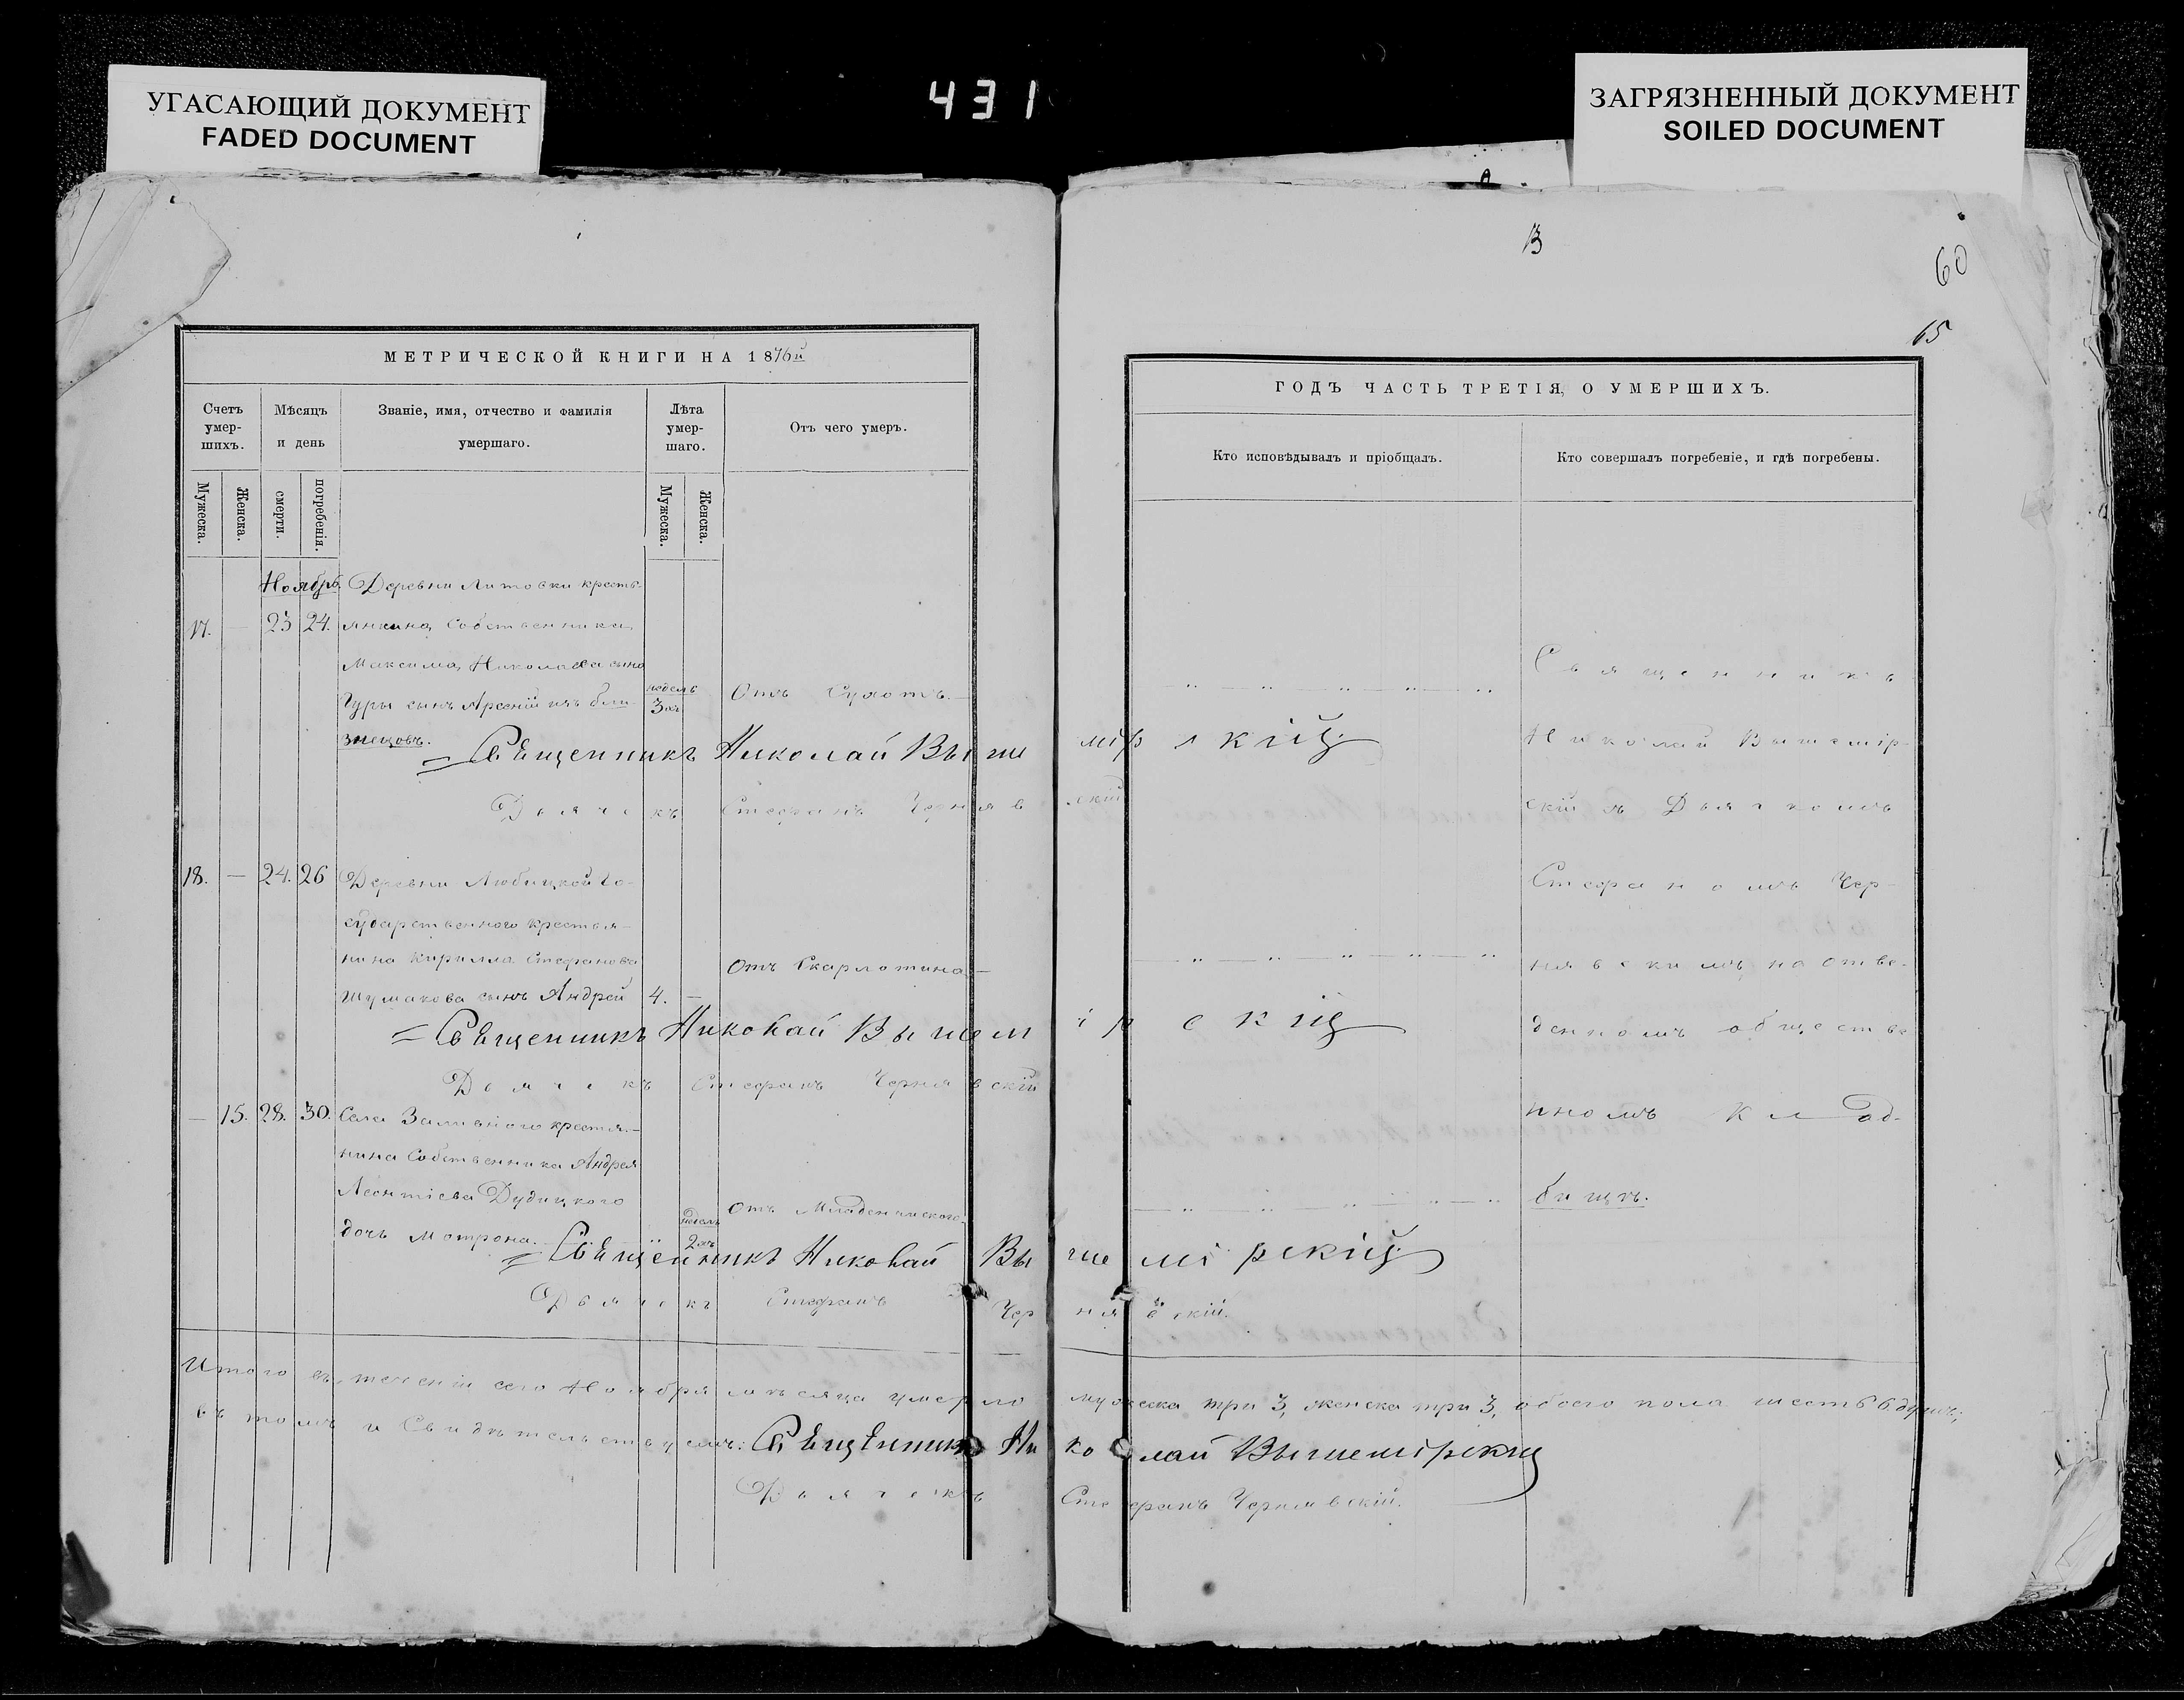 УГАСАЮЩИЙ ДОКУМЕНТ
FADED DOCUMENT
431
ЗАГРЯЗНЕННЫЙ ДОКУМЕНТ
SOILED DOCUMENT
60
65
МЕТРИЧЕСКОЙ КНИГИ НА 1876й
Счетъ умер-шихъ.
Мѣсяцъ и день
Званіе, имя, отчество и фамилія умершаго.
Лѣта умер-шаго.
Отъ чего умеръ.
Мужеска.
Женска.
смерти.
погребенія.
Мужеска.
Женска.
Ноябрь. Деревни Литовки кресть-
17. — 23 24. янина Собственника
Максима Николаева сына
Гуры сынъ Арсеній изъ бли- недель 3хъ Отъ Сухотъ.—
знецовъ.
= Священникъ Николай Вышемірскій
Дьячекъ Стефанъ Чернявскій
18. — 24. 26 Деревни Любицкой Го-
сударственного крестья-
нина Кирилла Стефанова Отъ Скарлотина—
Шумакова сынъ Андрей 4. —
= Священникъ Николай Вышемірскій
Дьячекъ Стефанъ Чернявскій
— 15. 28. 30. Села Заливного крестья-
нина Собственника Андрея
Леонтіева Дудицкого Отъ Младенческого
дочь Мотрона. недель 2хъ
= Священникъ Николай Вышемірскій
Дьячекъ Стефанъ Чернявскій.
ГОДЪ ЧАСТЬ ТРЕТІЯ, О УМЕРШИХЪ.
Кто исповѣдывалъ и пріобщалъ.
Кто совершалъ погребеніе, и гдѣ погребены.
Священникъ
Николай Вышемір-
скій съ Дьячкомъ
Стефаномъ Чер-
нявскимъ на отве-
денномъ обществе
нномъ клад-
бищѣ.
Итого въ теченіи сего Ноября мѣсяца умерло мужеска три 3, женска три 3, обоего пола шесть 6 душъ;
въ томъ и Свидѣтельствуемъ: Священникъ Николай Вышемірскій
Дьячекъ Стефанъ Чернявскій.